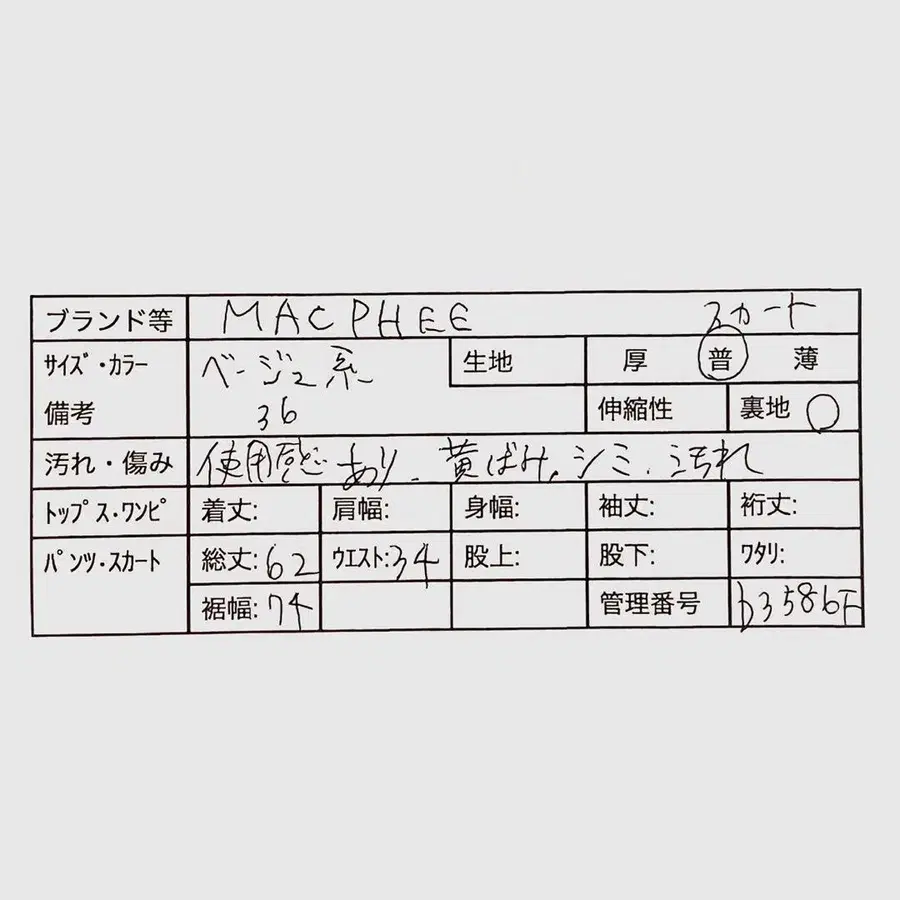 ブランド等 MACPHEE スカート
サイズ・カラー ベージュ系 生地 厚 普 薄
備考 36 伸縮性 裏地 ○
汚れ・傷み 使用感あり、黄ばみ、シミ、汚れ
トップス・ワンピ 着丈: 肩幅: 身幅: 袖丈: 裄丈:
パンツ・スカート 総丈:62 ウエスト:34 股上: 股下: ワタリ:
裾幅:74 管理番号 b3586F